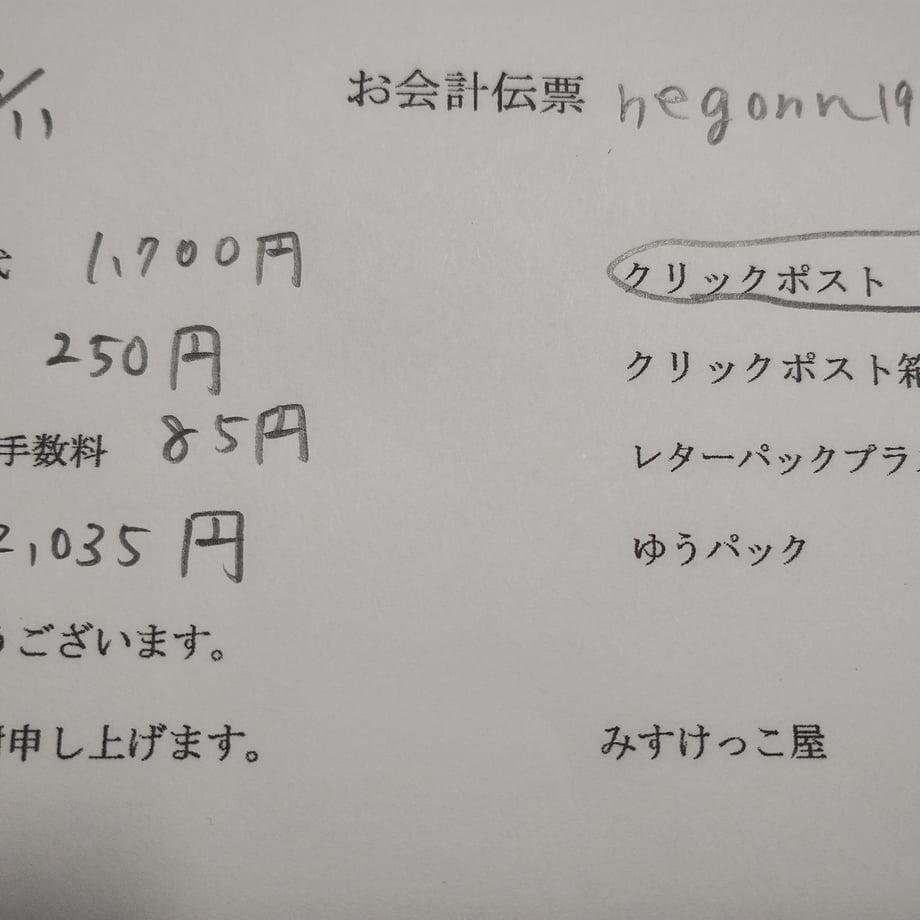 /11 お会計伝票 hegonn19
1,700円 クリックポスト
250円 クリックポスト箱
手数料 85円 レターパックプラス
2,035円 ゆうパック
うございます。
申し上げます。 みすけっこ屋